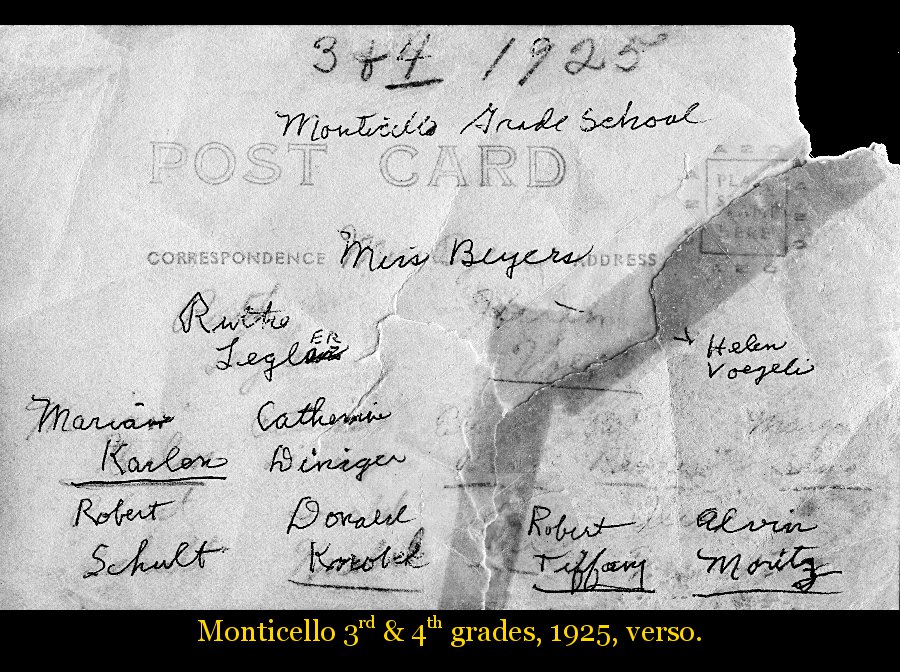 3 & 4 1925
Monticello Grade School
POST CARD
CORRESPONDENCE
Miss Beyers
ADDRESS
PLACE
STAMP
HERE
Ruth
Legler
Helen
Voegeli
Marian
Karlen
Catherine
Diniger
Robert
Schult
Donald
Knobel
Robert
Tiffany
Alvin
Moritz
Monticello 3rd & 4th grades, 1925, verso.